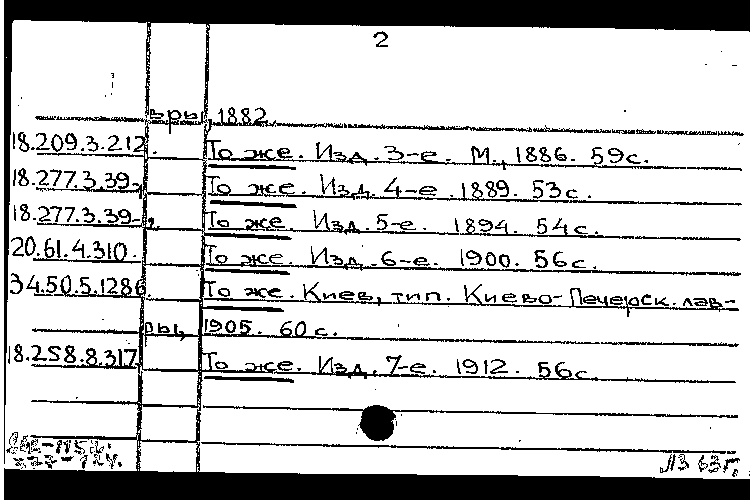 2
вры, 1882.
18.209.3.212. То же. Изд. 3-е. М., 1886. 59с.
18.277.3.39 То же. Изд. 4-е. 1889. 53с.
18.277.3.39 То же. Изд. 5-е. 1894. 54с.
20.61.4.310. То же. Изд. 6-е. 1900. 56с.
34.50.5.1286 То же. Киев, тип. Киево-Печерск. лав-
ры, 1905. 60с.
18.258.8.317 То же. Изд. 7-е. 1912. 56с.
ЛЗ 63г.